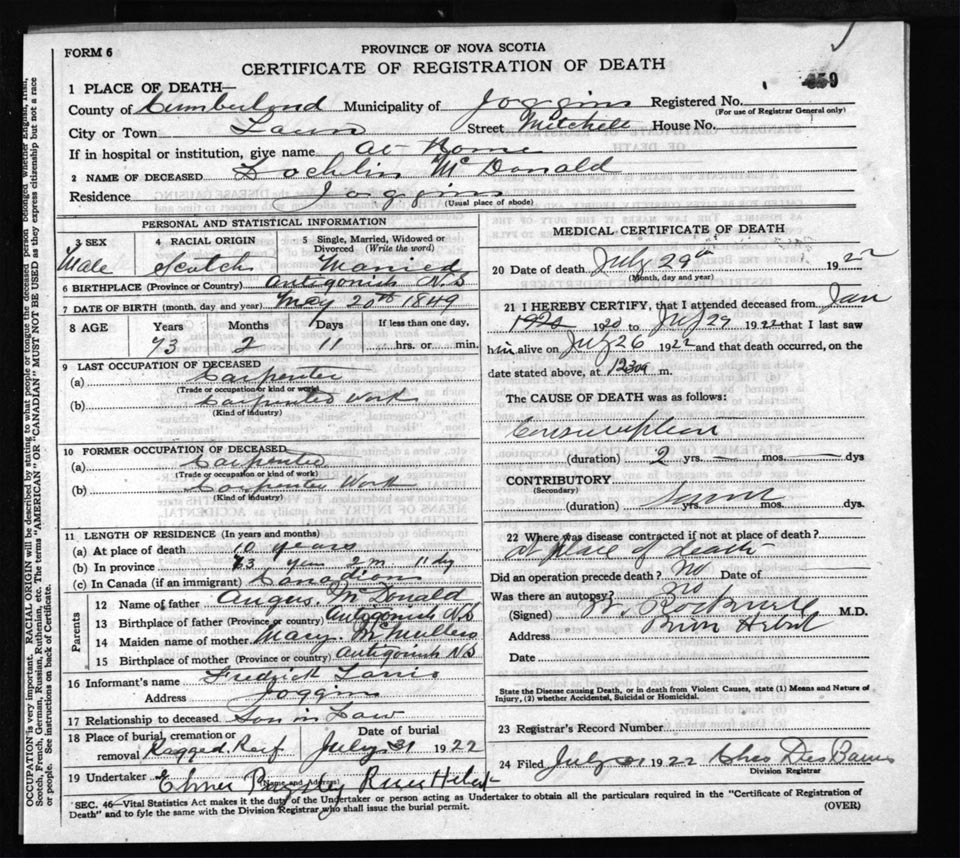 FORM 6
PROVINCE OF NOVA SCOTIA
CERTIFICATE OF REGISTRATION OF DEATH
1 PLACE OF DEATH—
County of Cumberland Municipality of Joggins Registered No. 859
(For use of Registrar General only)
City or Town Town Street Mitchell House No.
If in hospital or institution, give name at Home
2 NAME OF DECEASED Lochlin McDonald
Residence Joggins
(Usual place of abode)
PERSONAL AND STATISTICAL INFORMATION
3 SEX 4 RACIAL ORIGIN 5 Single, Married, Widowed or Divorced (Write the word)
Male Scotch Married
6 BIRTHPLACE (Province or Country) Antigonish N.S
7 DATE OF BIRTH (month, day and year) May 20th 1849
8 AGE Years Months Days If less than one day,
73 2 11 hrs. or min.
9 LAST OCCUPATION OF DECEASED
(a) Carpenter
(Trade or occupation or kind or work)
(b) Carpenter Work
(Kind of industry)
10 FORMER OCCUPATION OF DECEASED
(a) Carpenter
(Trade or occupation or kind of work)
(b) Carpenter Work
(Kind of industry)
11 LENGTH OF RESIDENCE (In years and months)
(a) At place of death 10 years
(b) In province 73 years 2 m 11 dy
(c) In Canada (if an immigrant) Canadian
Parents
12 Name of father Angus McDonald
13 Birthplace of father (Province or country) Antigonish N.S
14 Maiden name of mother Mary
15 Birthplace of mother (Province or country) Antigonish N.S
16 Informant's name Fredrick
Address Joggins
17 Relationship to deceased Son in Law
18 Place of burial, cremation or removal Ragged Reef Date of burial July 31 1922
19 Undertaker River Hebert
(Name and Address)
MEDICAL CERTIFICATE OF DEATH
20 Date of death July 29th 1922
(Month, day and year)
21 I HEREBY CERTIFY, that I attended deceased from Jan
1920 to July 29 1922 that I last saw
him alive on July 26 1922 and that death occurred, on the
date stated above, at 1230 m.
The CAUSE OF DEATH was as follows:
Consumption
(duration) 2 yrs. — mos. — dys
CONTRIBUTORY
(Secondary)
(duration) yrs. mos. dys.
22 Where was disease contracted if not at place of death?
at place of death
Did an operation precede death? No Date of
Was there an autopsy? no
(Signed) Rockwell M.D.
Address River Hebert
Date
State the Disease causing Death, or in death from Violent Causes, state (1) Means and Nature of
Injury, (2) whether Accidental, Suicidal or Homicidal.
23 Registrar's Record Number
24 Filed July 31 1922 Chas Des Barres
Division Registrar
SEC. 46—Vital Statistics Act makes it the duty of the Undertaker or person acting as Undertaker to obtain all the particulars required in the "Certificate of Registration of
Death" and to fyle the same with the Division Registrar who shall issue the burial permit.
(OVER)
OCCUPATION is very important. RACIAL ORIGIN will be described by stating to what people or tongue the deceased person belonged whether English, Irish,
Scotch, French, German, Russian, Ruthenian, etc. The terms "AMERICAN" or "CANADIAN" MUST NOT BE USED as they express citizenship but not a race
or people. See instructions on back of Certificate.